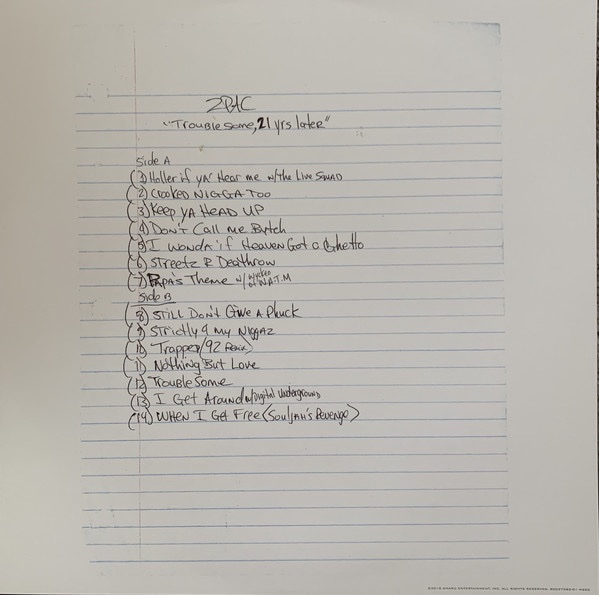 2PAC
"Troublesome, 21 yrs later"
Side A
(1) Holler if ya' Hear me w/the Live Squad
(2) Crooked Nigga Too
(3) Keep ya Head Up
(4) Don't Call me Bytch
(5) I wonda' if Heaven Got a Ghetto
(6) Streetz R Deathrow
(7) Papa's Theme w/ Wycked of N.A.T.M
Side B
(8) Still Don't Give A Phuck
(9) Strictly 4 my Niggaz
(10) Trapped (92 Remix)
(11) Nothing But Love
(12) TroubleSome
(13) I Get Around w/Digital Underground
(14) When I Get Free (Souljah's Revenge)